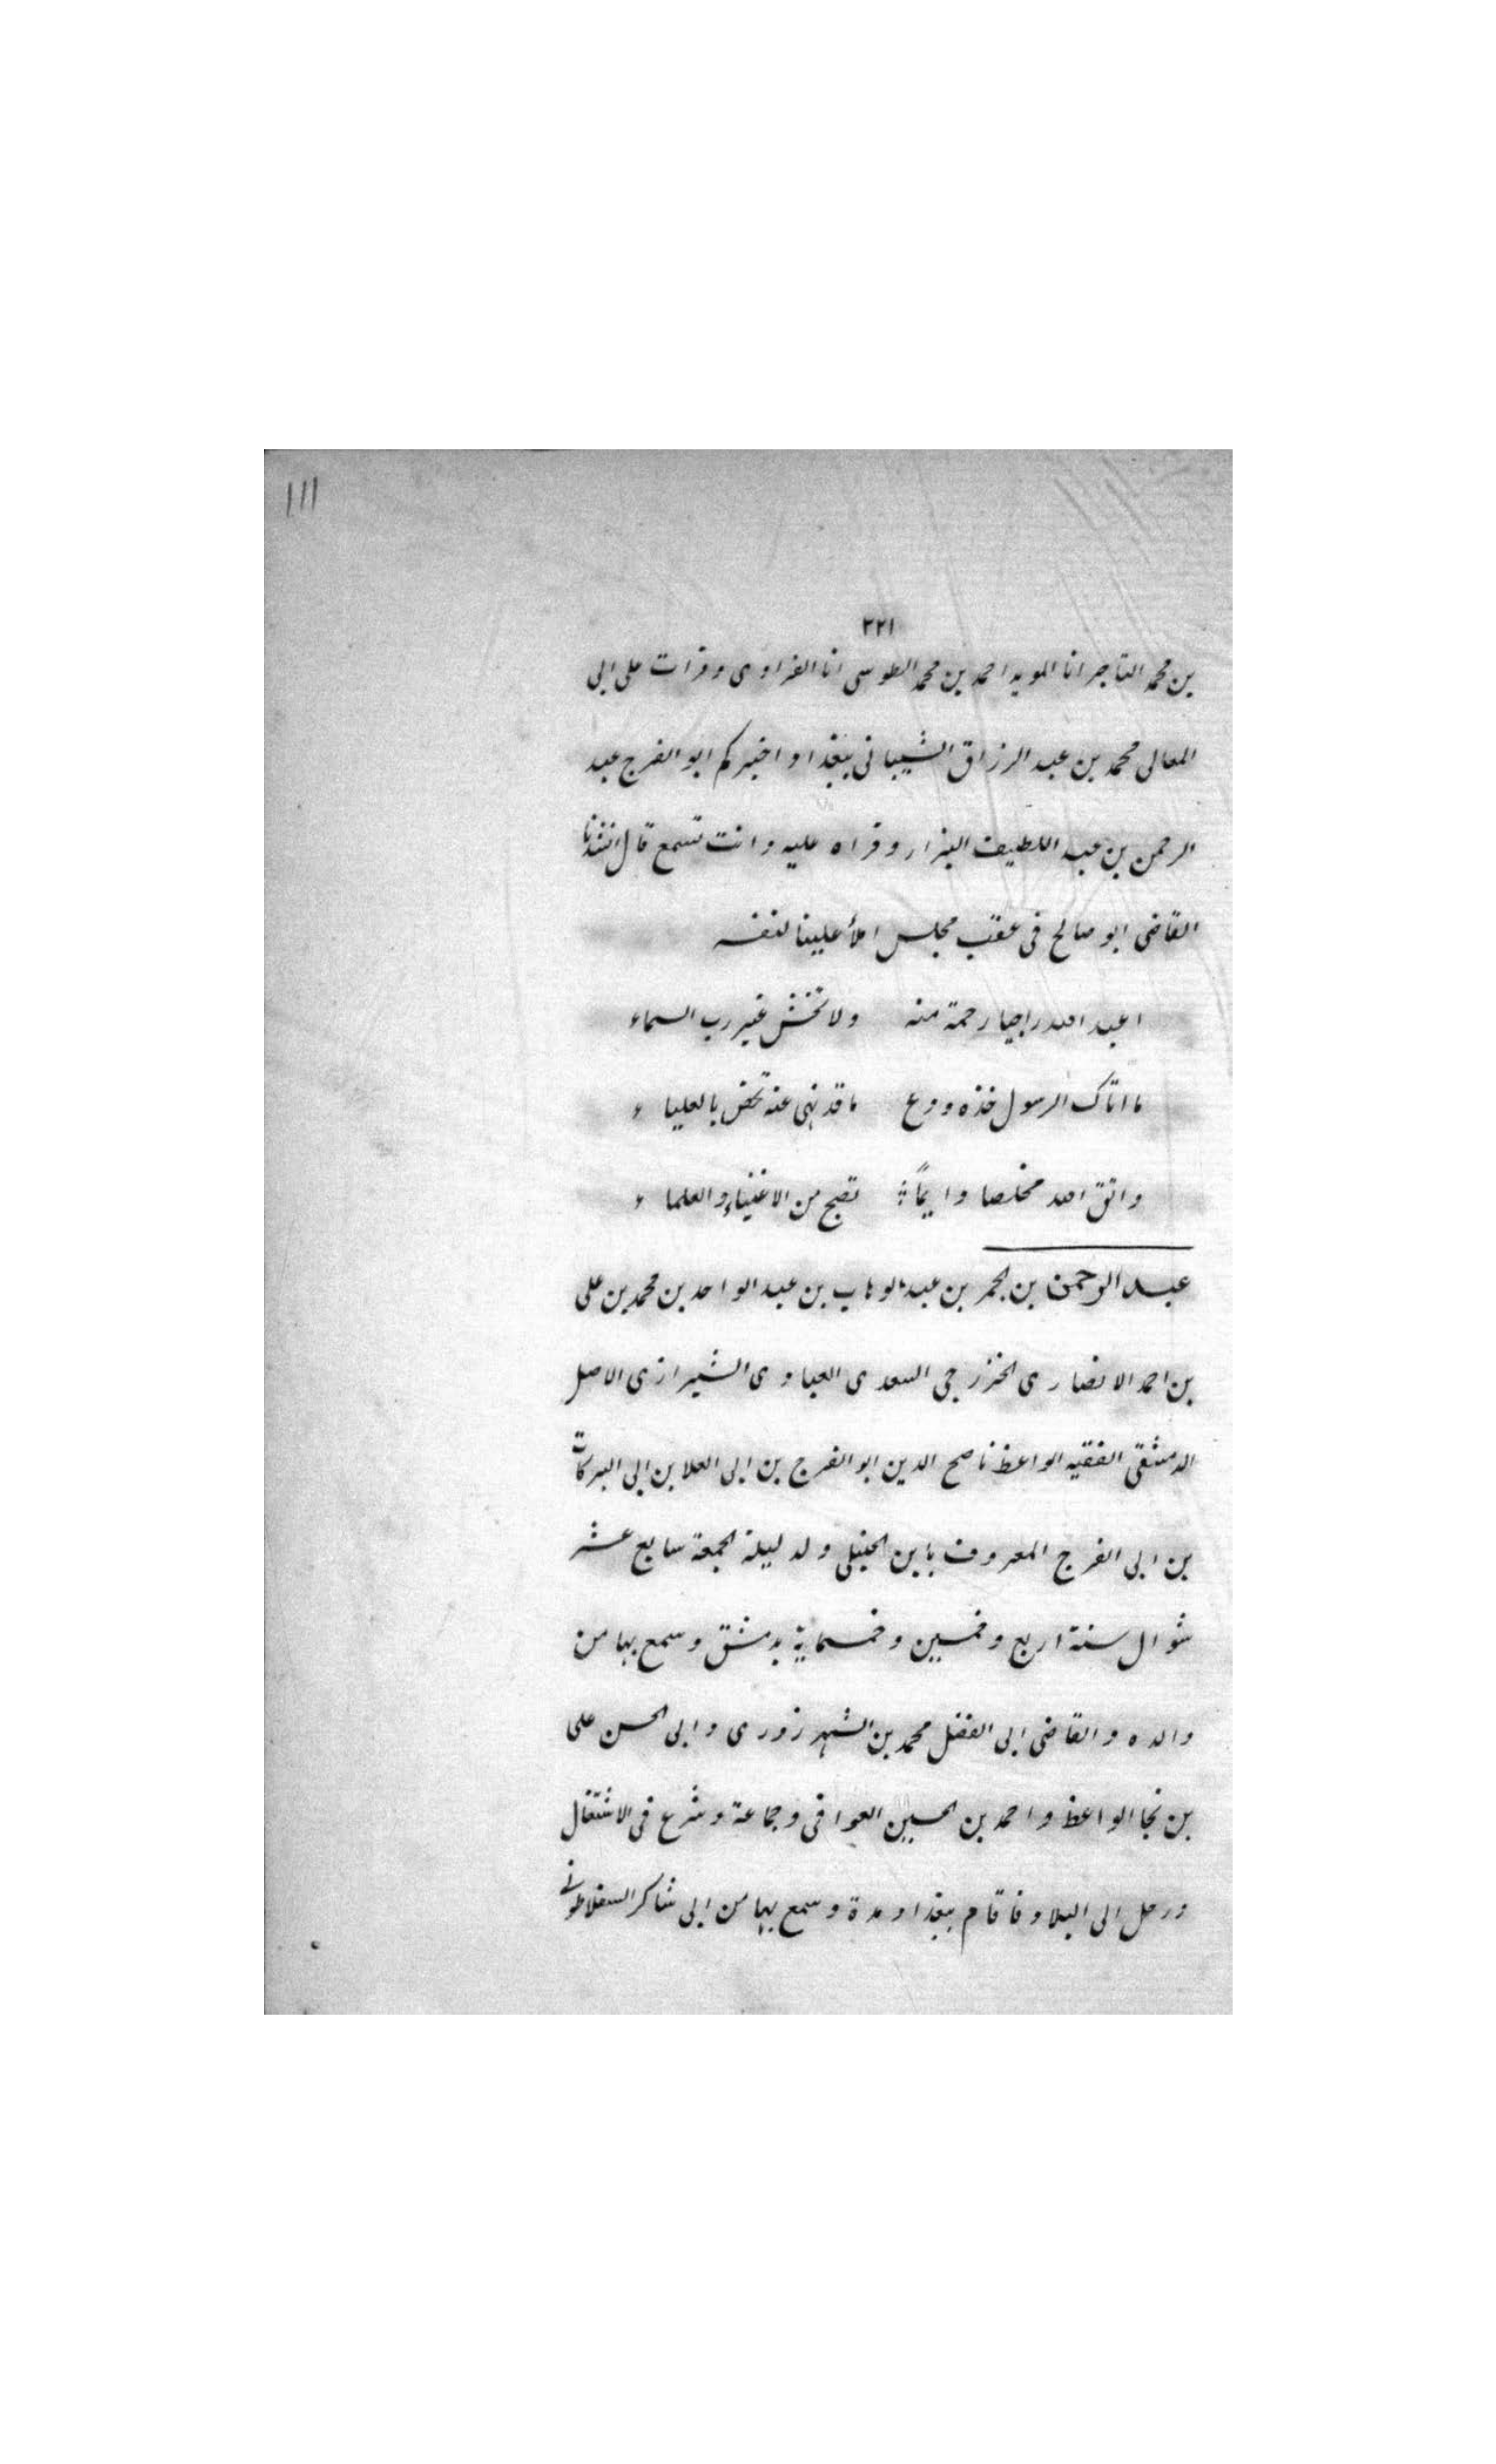 ١١١
٢٢١
بن محمد التاجر انا المويد احمد بن محمد الطوسى انا الفراوى وقرات على ابى
المعالى محمد بن عبد الرزاق الشيبانى ببغداد اخبركم ابو الفرج عبد
الرحمن بن عبد اللطيف البزار وقراه عليه وانت تسمع قال انشدنا
القاضى ابو صالح فى عقب مجلس املأ علينا لنفسه
اعبد الله راجيا رحمة منه ولا تخش غير رب السماء
ما اتاك الرسول خذه ودع ما قد نهى عنه تحض بالعلياء
واتق الله مخلصا دايمًا تصبح من الاغنياء والعلماء
عبد الرحمن بن نجم بن عبد الوهاب بن عبد الواحد بن محمد بن على
بن احمد الانصارى الخزرجى السعدى العبادى الشيرازى الاصل
الدمشقى الفقيه الواعظ ناصح الدين ابو الفرج بن ابى العلا بن ابى البركات
بن ابى الفرج المعروف بابن الحنبلى ولد ليلة الجمعة سابع عشر
شوال سنة اربع وخمسين وخمسماية بدمشق وسمع بها من
والده والقاضى ابى الفضل محمد بن الشهرزورى وابى الحسن على
بن نجا الواعظ واحمد بن الحسين العراقى وجماعة وشرع فى الاشتغال
ورحل الى البلاد فاقام ببغداد مدة وسمع بها من ابى شاكر السقلاطونى